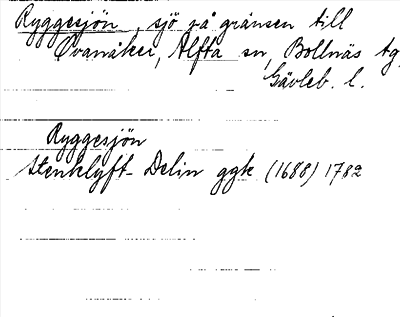 Ryggesjön, sjö på gränsen till
Ovanåker, Alfta sn, Bollnäs tg,
Gävleb. l.
Ryggesjön
Stenklyft- Delin ggk (1688) 1782